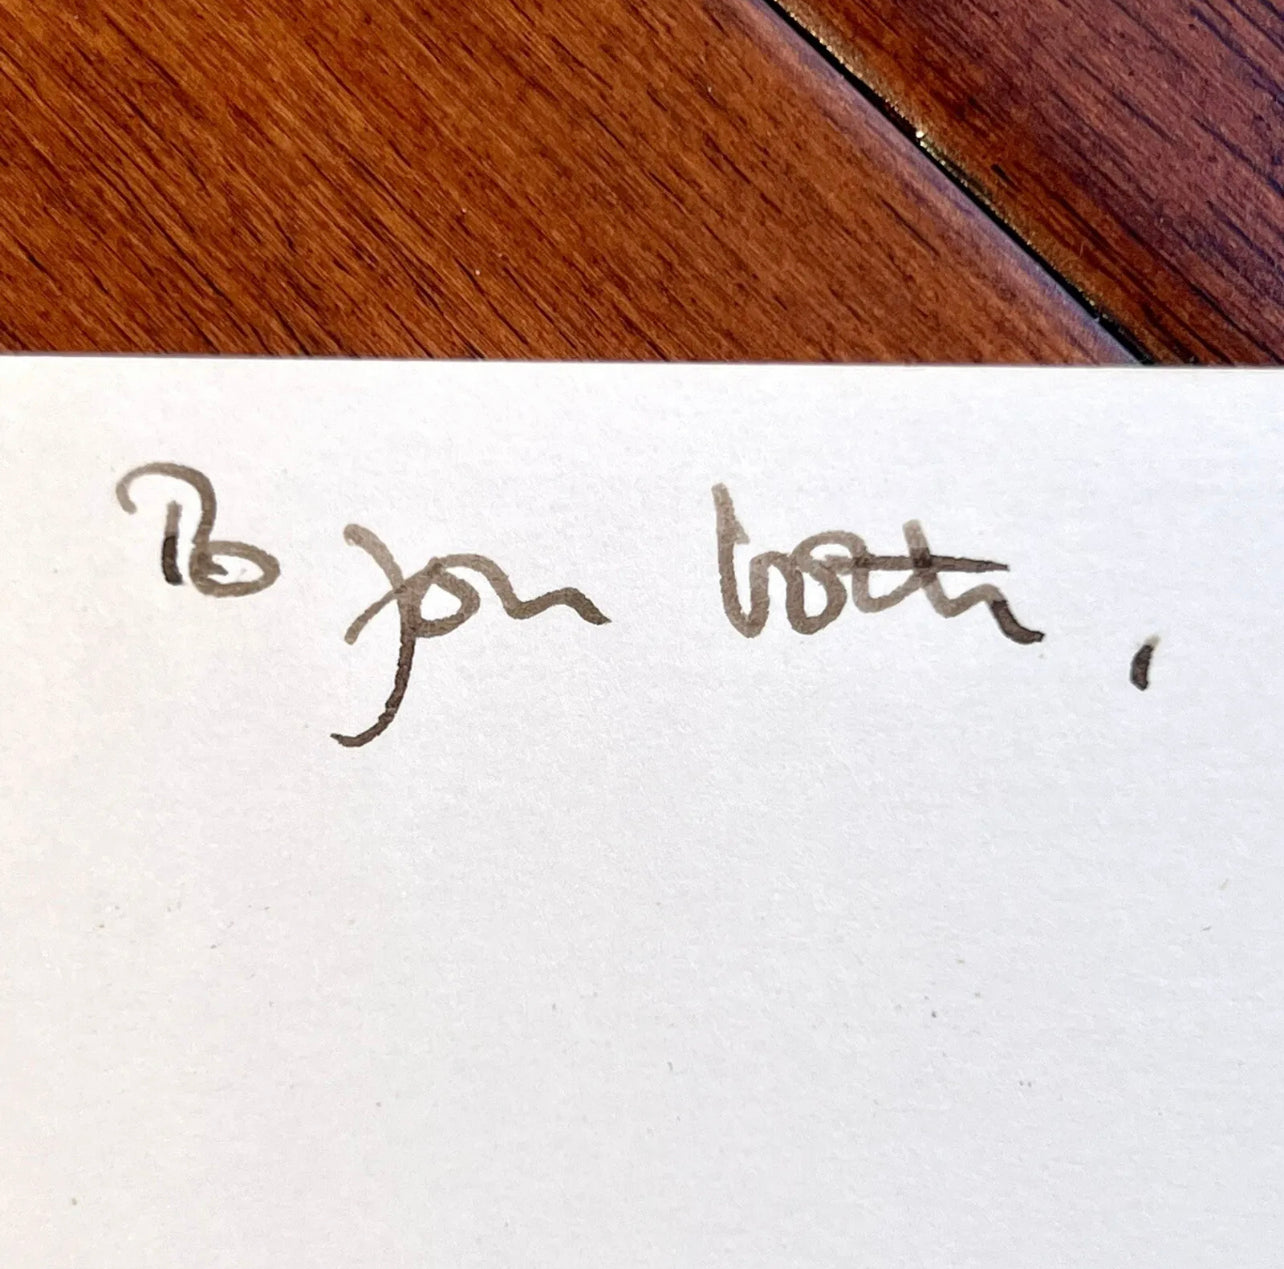 To you both,